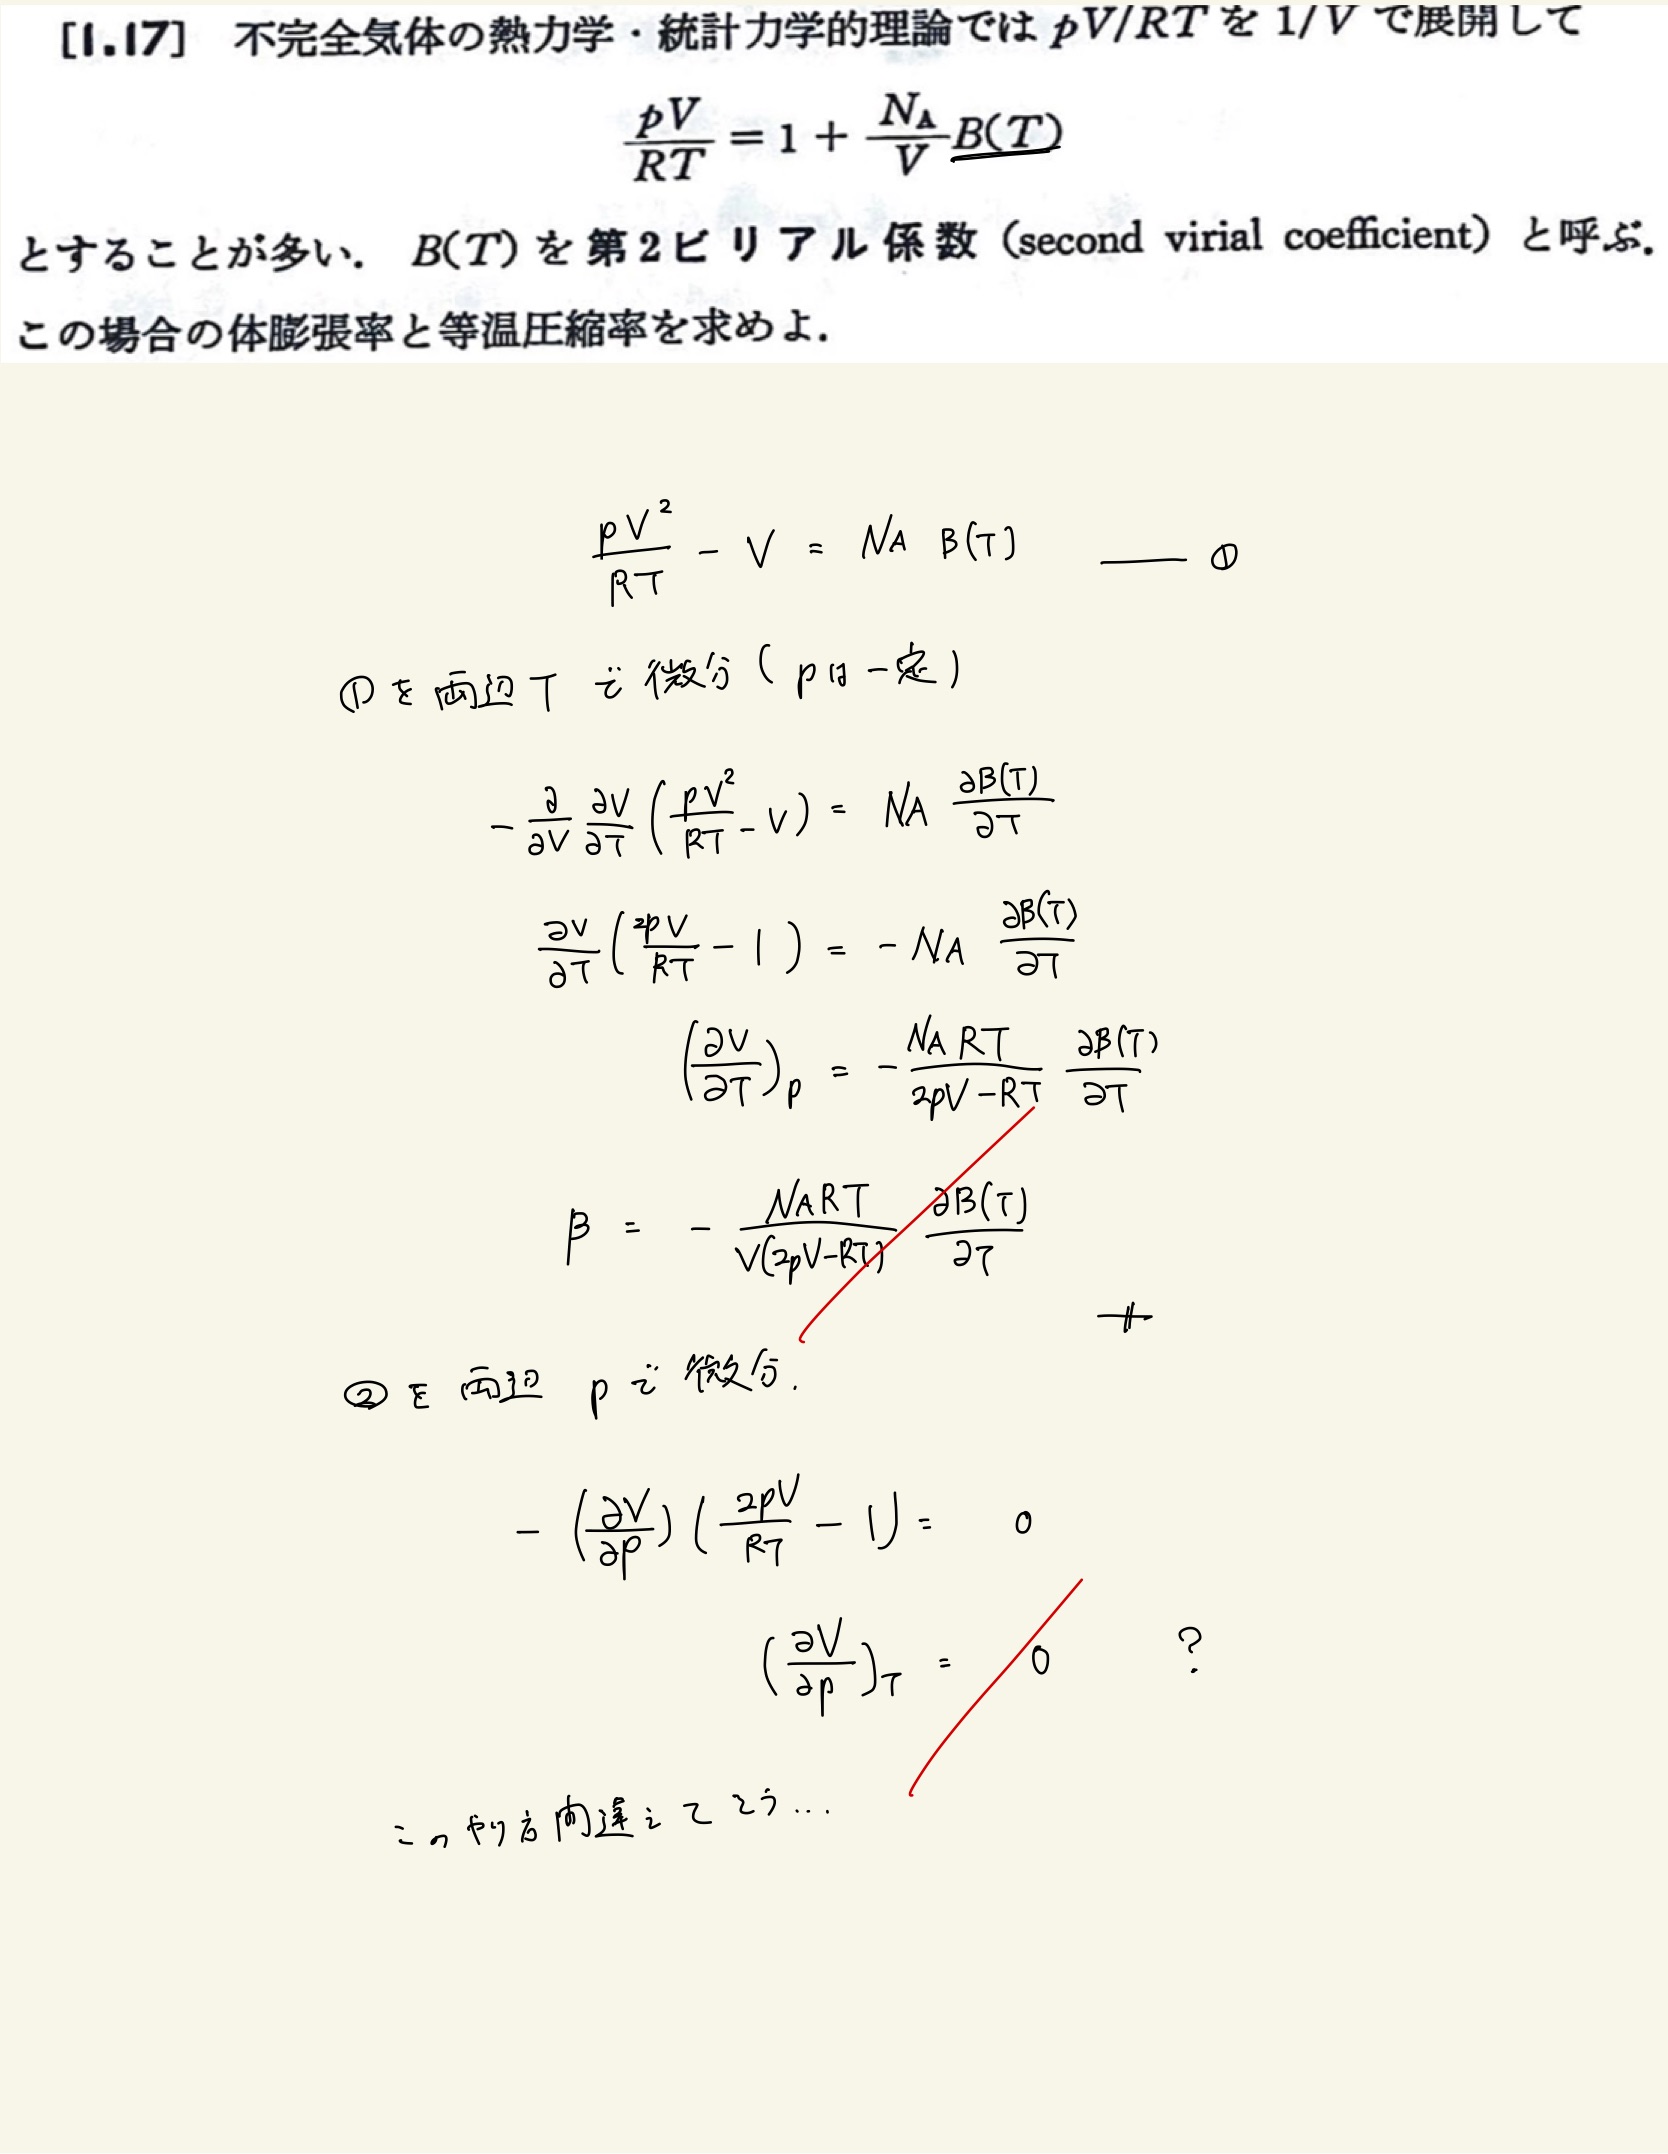 [1.17] 不完全気体の熱力学・統計力学的理論では pV/RT を 1/V で展開して
pV/RT = 1 + N_A/V B(T)
とすることが多い. B(T) を第2ビリアル係数 (second virial coefficient) と呼ぶ.
この場合の体膨張率と等温圧縮率を求めよ.
pV²/RT - V = NA B(T) —— ①
①を両辺Tで微分(pは一定)
- ∂/∂V ∂V/∂T (pV²/RT - V) = NA ∂B(T)/∂T
∂V/∂T (2pV/RT - 1) = - NA ∂B(T)/∂T
(∂V/∂T)p = - NA RT/2pV-RT ∂B(T)/∂T
β = - NART/V(2pV-RT) ∂B(T)/∂T
②を両辺 pで微分.
- (∂V/∂p) (2pV/RT - 1) = 0
(∂V/∂p)T = 0 ?
このやり方間違えてそう...